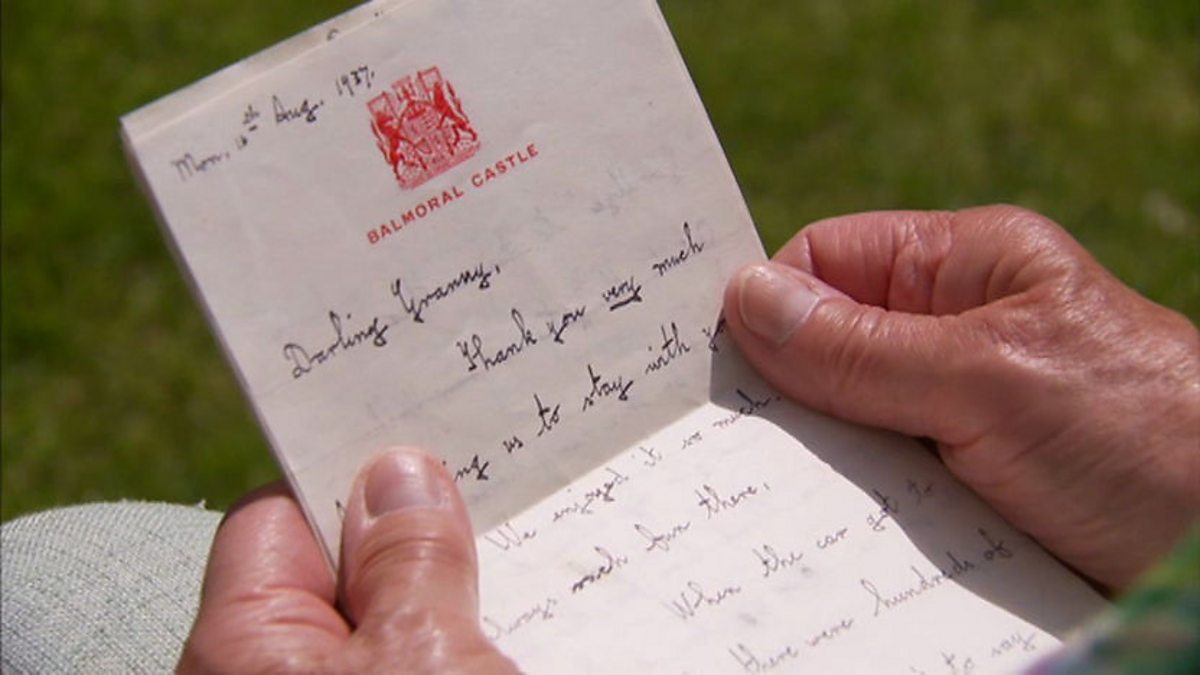 Mon, Aug. 1937.
BALMORAL CASTLE
Darling Granny,
Thank you very much
ing us to stay with yo
We enjoyed it so much.
lways such fun there,
When the car got to
there were hundreds of
to say